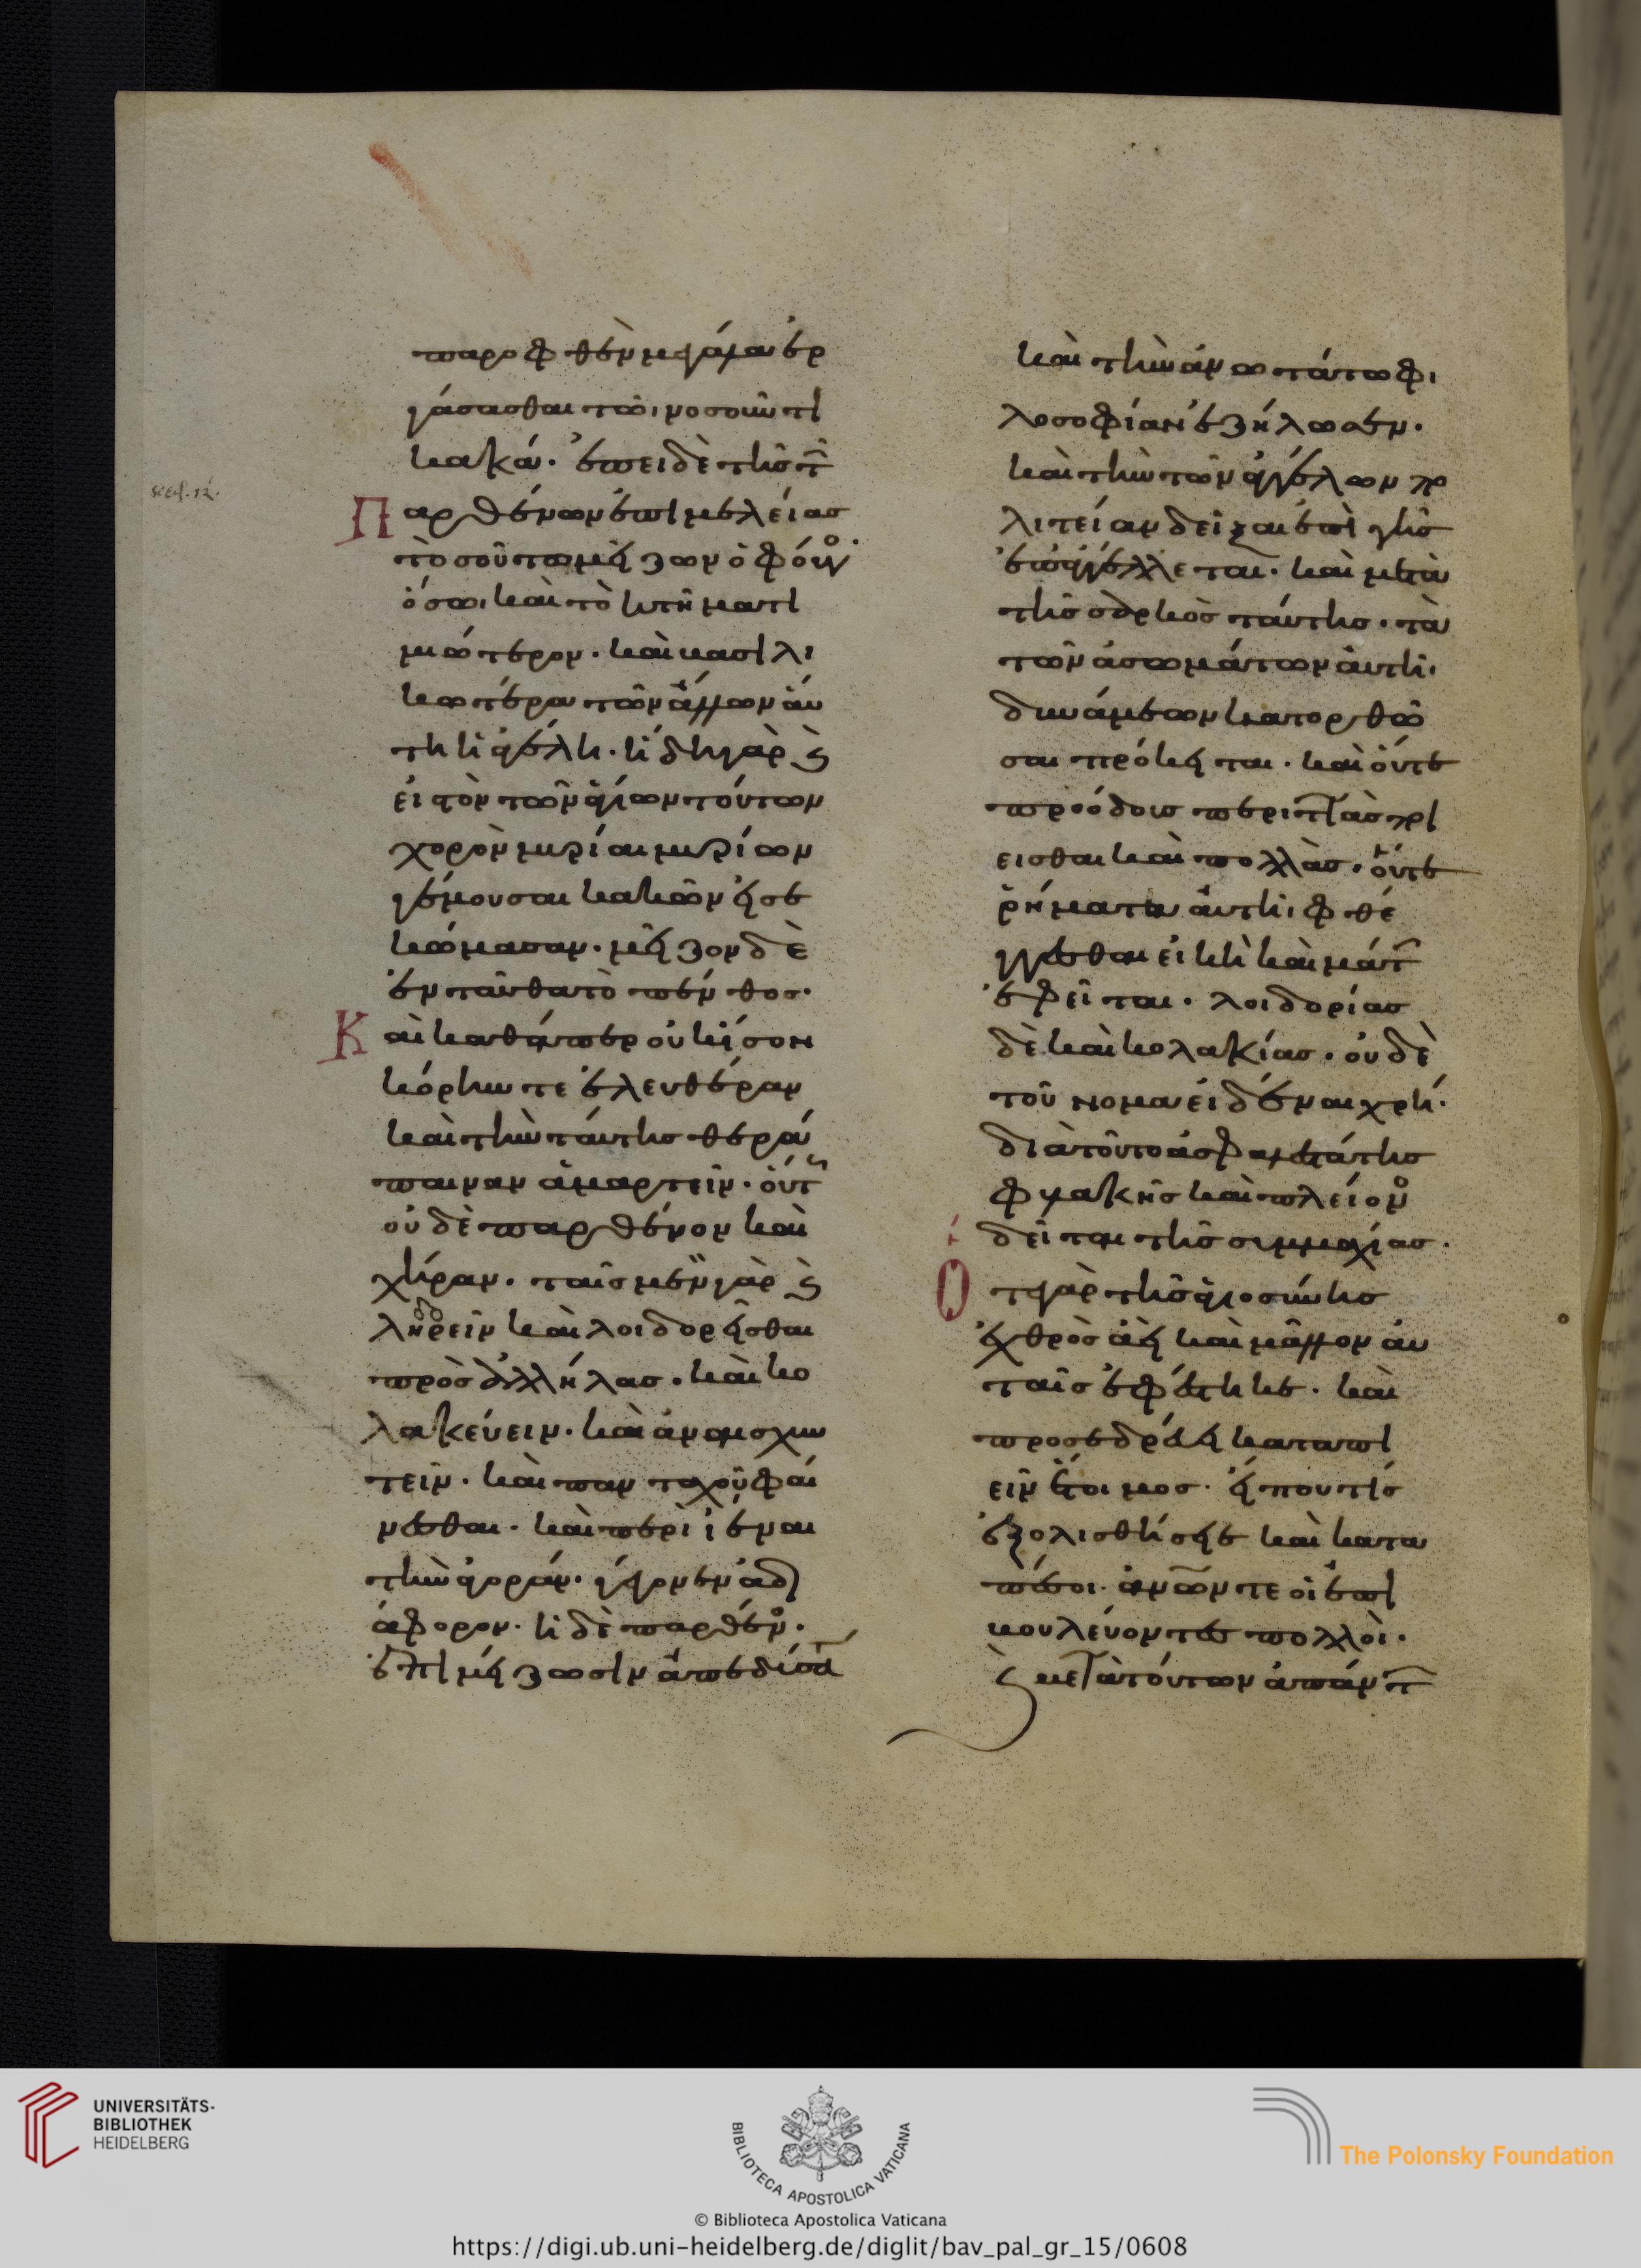 παροφθὲν μεγάλα ἐρ
γάσασθαι τῶ, νοσοῦντι
κακά. ἐπειδὲ τῆς τ̑
Παρθένων ἐπιμελείας
τοσούτω μείζων ὁ φόβο.
ὅσω, καὶ τὸ κτῆμα τι
μιώτερον. καὶ βασιλι
κωτέρα τῶν ἄλλων αὕ
τη ἡ ἀγέλη. ἤδη γὰρ ϗ
εἰς τὸν τῶν ἁγίων τούτων
χορὸν μυρίαι μυρίων
γέμουσαι κακῶν εἰσε
κώμασαν. μεῖζον δὲ
ἐνταῦθα τὸ πένθος.
Καὶ καθάπερ οὐκ ἴσον
κόρην τε ἐλευθέραν
καὶ τὴν ταύτης θερά
παιναν ἁμαρτεῖν. οὕτ
οὐδὲ παρθένον καὶ
χήραν. ταῖς μὲν γὰρ ϗ
ληρεῖν καὶ λοιδορεῖσθαι
πρὸς ἀλλήλας. καὶ κο
λακεύειν. καὶ ἀναισχυν
τεῖν. καὶ πανταχοῦ φαί
νεσθαι. καὶ περιϊέναι
τὴν ἀγοράν. γέγονεν ἀδι
άφορον. ἡ δὲ παρθένο.
ἐπὶ μείζωσιν ἀπεδύσατ
καὶ τὴν ἀνωτάτω φι
λοσοφίαν ἐζήλωσεν.
καὶ τὴν τῶν ἀγγέλων πο
λιτείαν δεῖξαι ἐπὶ γῆς
ἐπαγγέλλεται. καὶ μετὰ
τῆς σαρκὸς ταύτης. τὰ
τῶν ἀσωμάτων αὐτῆ,
δυνάμεων κατορθῶ
σαι πρόκειται. καὶ οὔτε
προόδους περιττὰς ποι
εῖσθαι καὶ πολλάς. οὔτε
ῥήματα αὐτῆ, φθέ
γγεσθαι εἰκῆ καὶ μάτ
ἐφεῖται. λοιδορίας
δὲ καὶ κολακίας. οὐδὲ
τοὔνομα εἰδέναι χρή.
διὰ τοῦτο ἀσφαλεστάτης
φυλακῆς καὶ πλείονο
δεῖται τῆς συμμαχίας.
Ὅτε γὰρ τῆς ἁγιοσύνης
ἐχθρὸς ἀεὶ καὶ μᾶλλον αὐ
ταῖς ἐφέστηκε. καὶ
προσεδρεύει καταπι
εῖν ἕτοιμος. εἴπου τίς
ἐξολισθήσειε καὶ κατα
πέσοι. ἀνῶν τε οἱ ἐπι
βουλεύοντες πολλοὶ.
ϗ μετὰ τούτων ἁπάντ